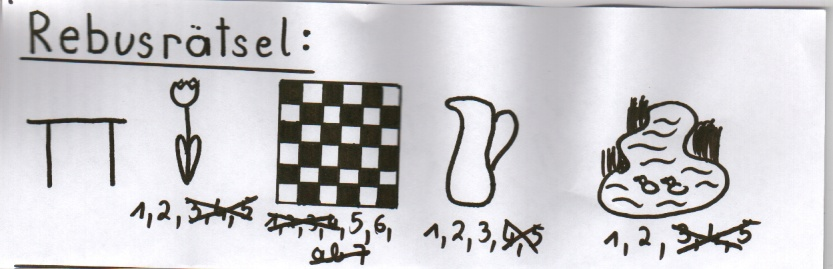 Rebusrätsel:
1, 2, 3, 4, 5
1, 2, 3, 4, 5, 6,
ab 7
1, 2, 3, 4, 5
1, 2, 3, 4, 5